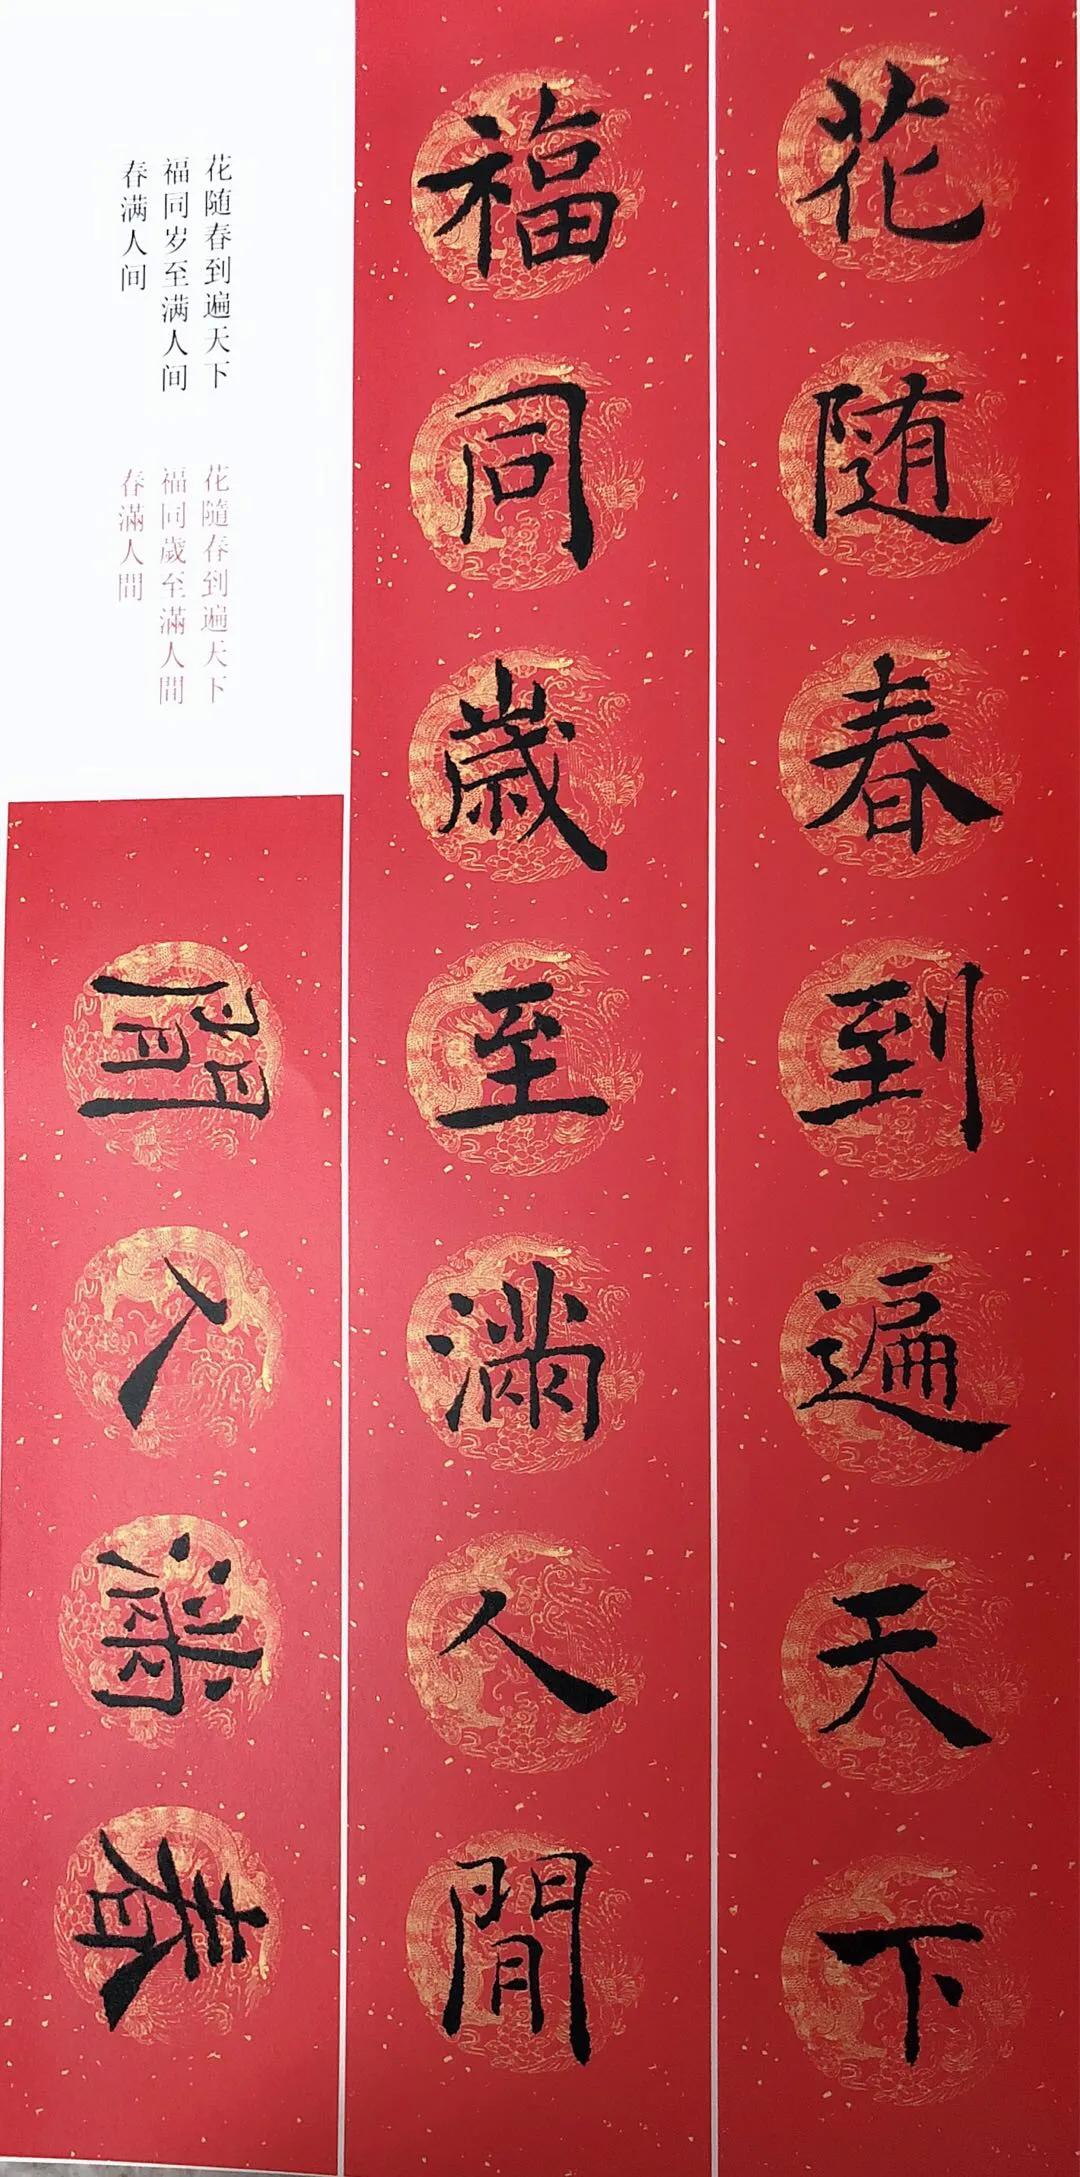 花随春到遍天下
福同歲至滿人間
春滿人間
花随春到遍天下
福同岁至满人间
春满人间
花隨春到遍天下
福同歲至滿人間
春滿人間